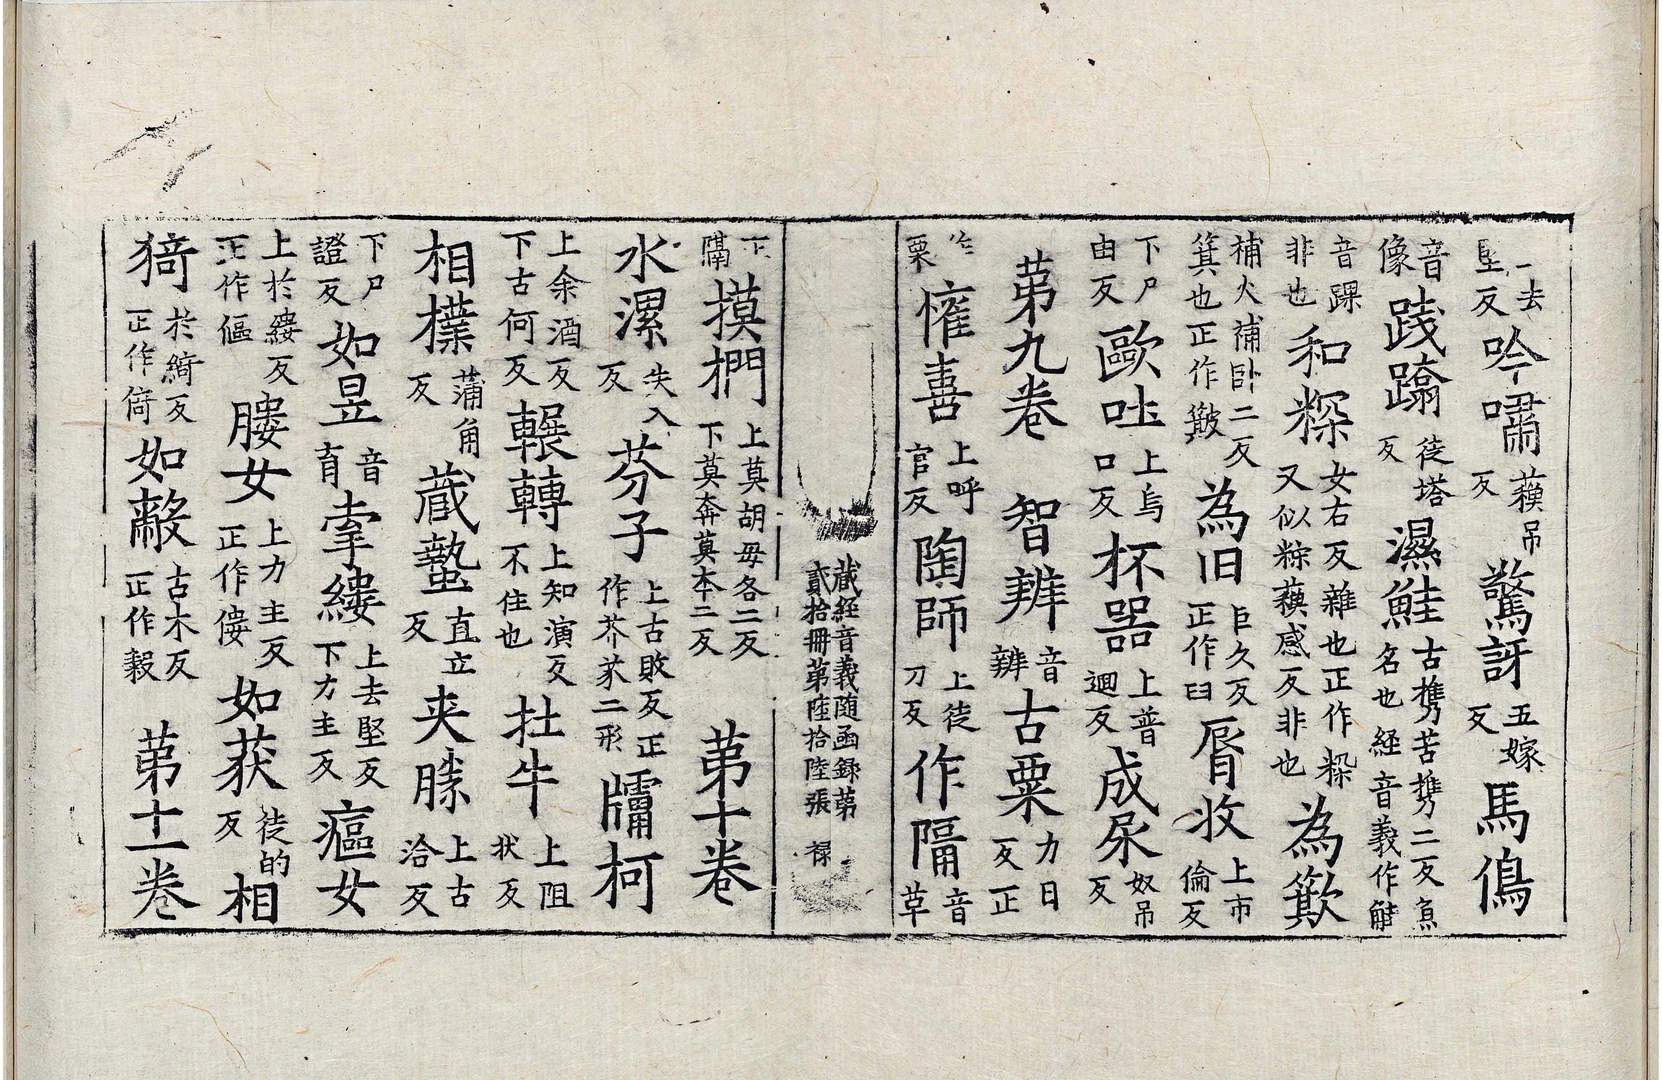 上去堅反吟嘯蘓吊反驚訝五嫁反馬傿
音像踐蹹徒塔反濕鮭古攜苦攜二反魚名也経音義作鮭
音踝非也和粽女右反雜也正作糅又似粽蘓感反非也為歎
補火補卧二反箕也正作簸為旧巨久反正作臼脣收上市倫反
下尸由反歐吐上烏口反杯器上普迴反成尿奴吊反
苐九卷　智辨音辨古粟力日反正
作栗懽喜上呼官反陶師上徒刀反作隔音草
藏経音義随函録苐
貳拾冊苐陸拾陸張　禄
下隔摸捫上莫胡毋各二反下莫奔莫本二反　苐十卷
水漯失入反芬子上古敗反正作芥茮二形牗柯
上余酒反下古何反輾轉上知演反不住也牡牛上阻状反
相撲蒲角反蔵蟄直立反夹䐑上古洽反
下尸證反如昱音育牽縷上去堅反下力主反㾾女
上於縷反正作傴膢女上力主反正作僂如荻徒的反相
猗於綺反正作倚如㲉古木反正作穀　苐十一卷